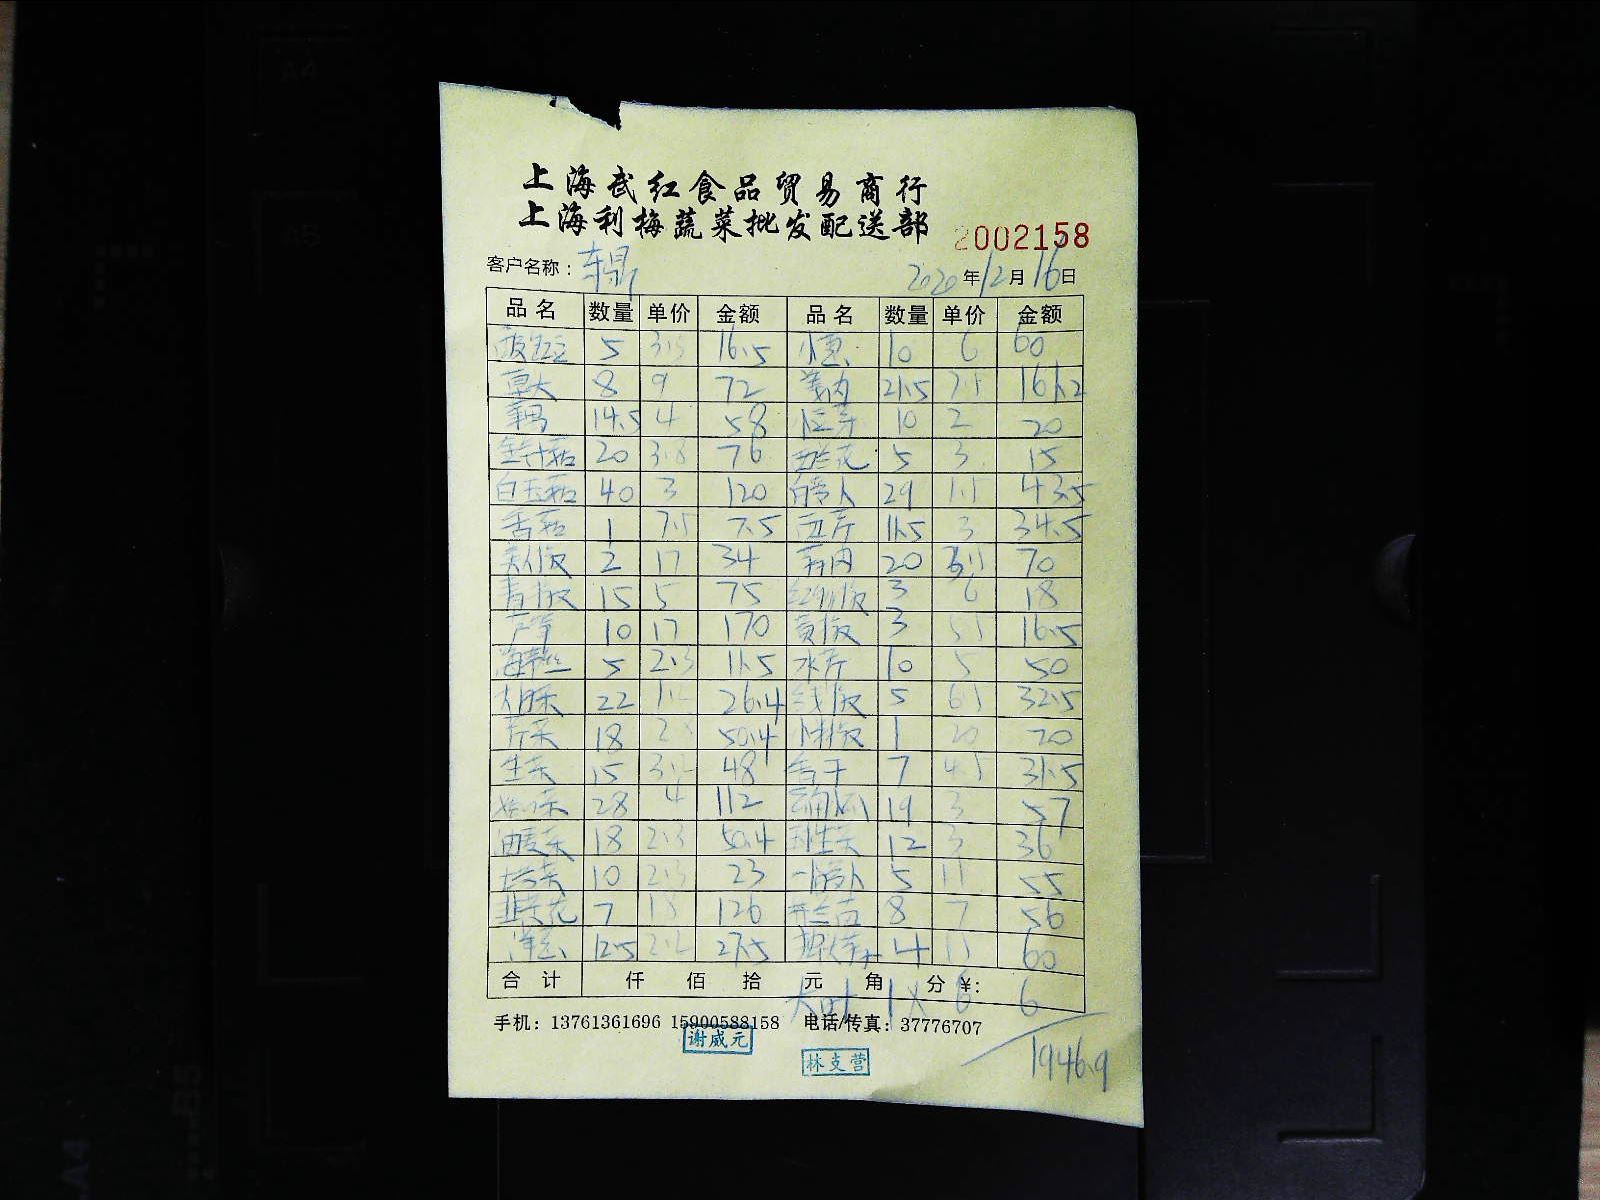 上海武红食品贸易商行
上海利梅蔬菜批发配送部
2002158
客户名称： 2020年12月16日
品名 数量 单价 金额 品名 数量 单价 金额
5 3.3 16.5 10 6 60
8 9 72 21.5 7.5 161.2
藕 14.5 4 58 10 2 20
金针菇 20 3.8 76 西兰花 5 3 15
白玉菇 40 3 120 29 1.5 43.5
香菇 1 7.5 7.5 西芹 11.5 3 34.5
2 17 34 20 70
青椒 15 5 75 3 6 18
芦笋 10 17 170 黄椒 3 5.5 16.5
海带丝 5 2.3 11.5 水芹 10 5 50
22 1.2 26.4 线椒 5 6.5 32.5
芹菜 18 2.8 50.4 1 70
生菜 15 3.2 48 香干 7 4.5 31.5
28 4 112 19 3 57
油麦菜 18 50.4 12 3 36
10 2.3 23 5 11 55
韭菜花 7 18 126 8 7 56
洋葱 12.5 2.2 27.5 4 60
合计 仟 佰 拾 元 角 分 ¥:
大叶 1 X 6 6
手机：13761361696 15900588158 电话/传真：37776707
谢威元
林支营
1946.9